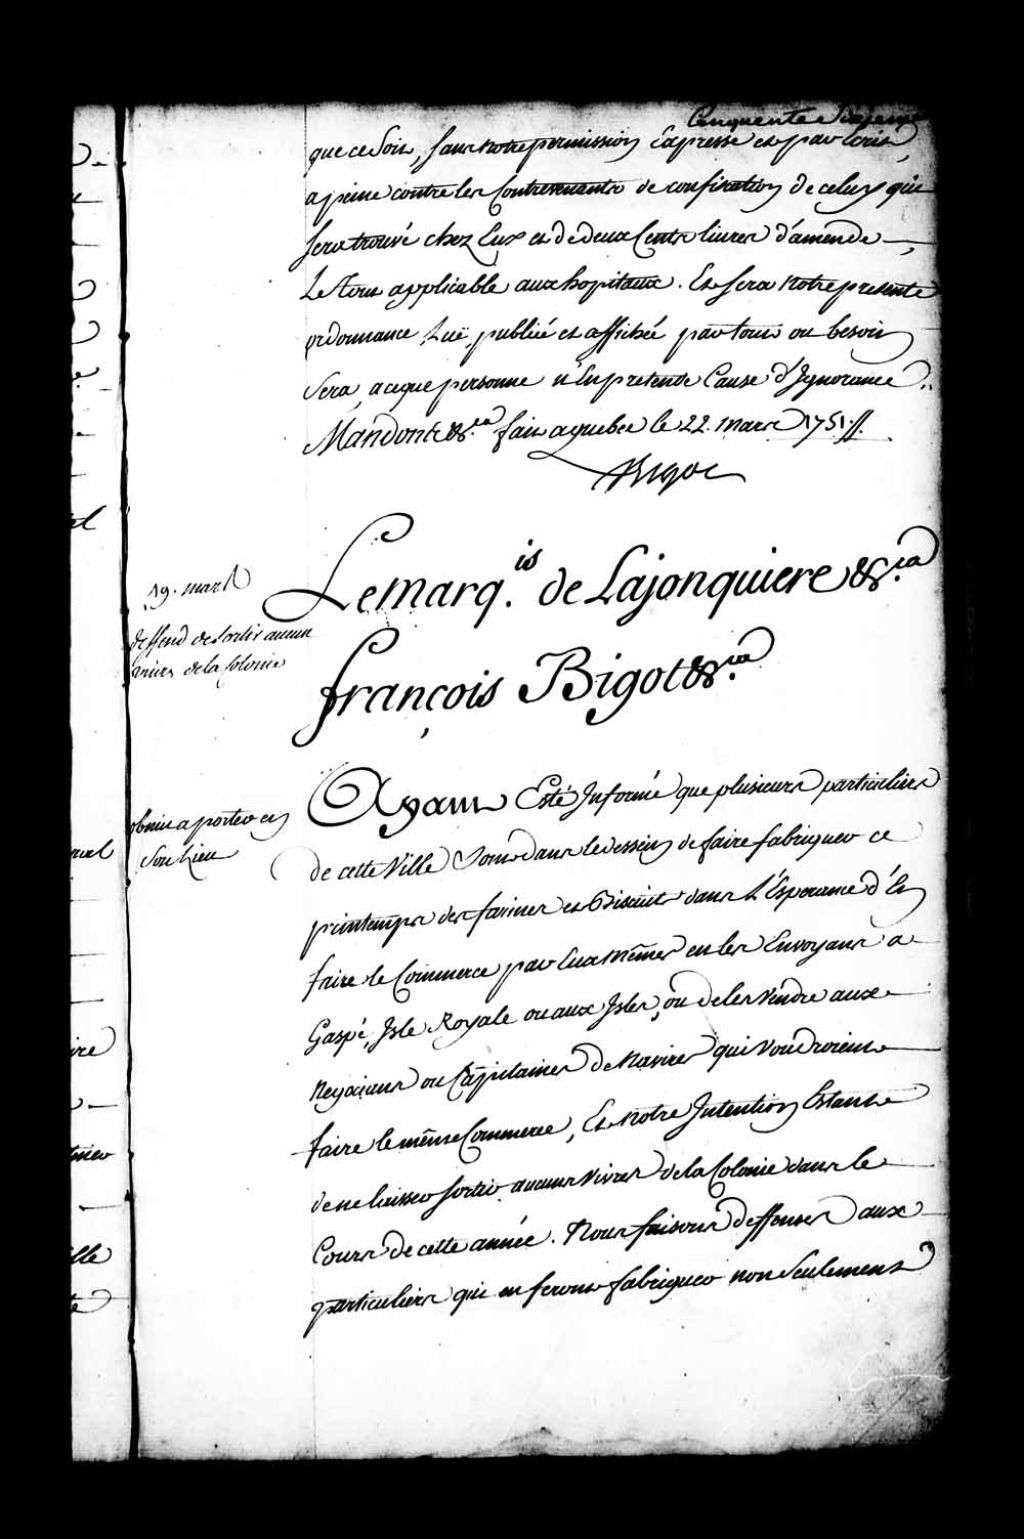 Cinquente Sixieme
que ce Soit, sans notre permission Expresse et par Ecrit,
a peine contre les Contrevenants de confiscation de celuy qui
sera trouvé chez Eux et de deux Cents livres d'amende
Le tout applicable aux hopitaux. Et sera notre presente
ordonnance Luë, publiée et affichée par tout ou besoin
Sera, aceque personne n'En pretende Cause d'Ignorance.
Mandons &.ca fait a quebec le 22. mars 1751.
Bigot
Le marq.is de Lajonquiere &.ca
françois Bigot &.ca
19. mars
deffend de sortir aucun
vivres de la Colonie
Ayant Esté Informé que plusieurs particuliers
de cette Ville Sont dans le dessein de faire fabriquer ce
printemps des farines et Biscuits dans L'Esperance d'En
faire le Commerce par Eux mêmes en les Envoyant a
Gaspé, Isle Royale ou aux Isles, ou de les Vendre aux
Negocians ou Capitaines de Navires qui Voudroient
faire le même Commerce, Et Notre Intention Estant
de ne laisser sortir aucuns Vivres de la Colonie dans le
Cours de cette année. Nous faisons deffenses aux
particuliers qui en feront fabriquer non Seulement
a porter en
Son Lieu